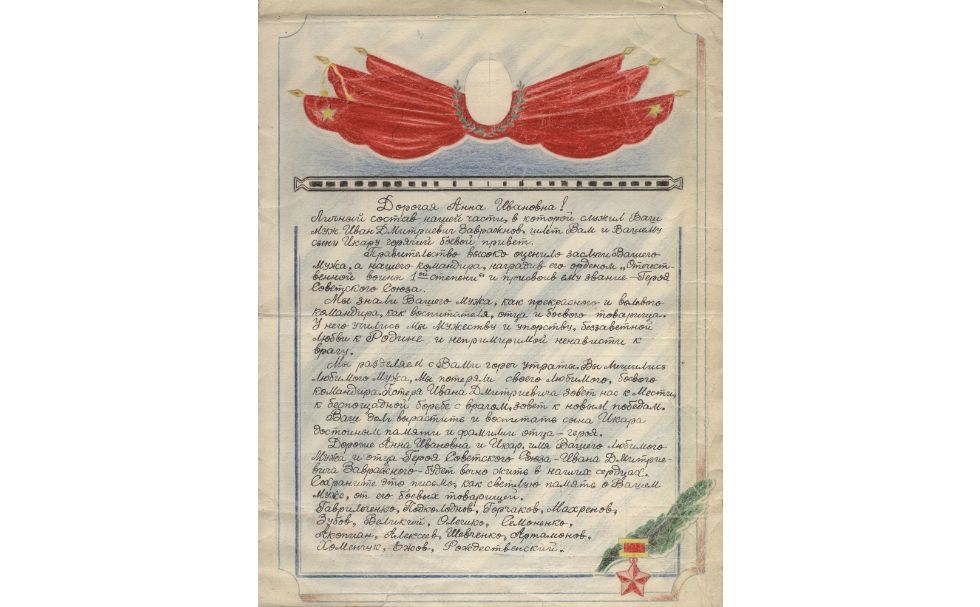 Дорогая Анна Ивановна!
Личный состав нашей части, в которой служил Ваш
муж Иван Дмитриевич Завражнов, шлёт Вам и Вашему
сыну Икару горячий боевой привет.
Правительство высоко оценило заслуги Вашего
мужа, а нашего командира, наградив его орденом „Отечест-
венной войны 1ой степени" и присвоив ему звание - Героя
Советского Союза.
Мы знали Вашего мужа, как прекрасного и волевого
командира, как воспитателя, отца и боевого товарища.
У него учились мы мужеству и упорству, беззаветной
любви к Родине и непримиримой ненависти к
врагу.
Мы разделяем с Вами горечь утраты. Вы лишились
любимого мужа, мы потеряли своего любимого, боевого
командира. Потеря Ивана Дмитриевича зовёт нас к мести,
к беспощадной борьбе с врагом, зовёт к новым победам.
Ваш долг вырастить и воспитать сына Икара
достойным памяти и фамилии отца - героя.
Дорогие Анна Ивановна и Икар, имя Вашего любимого
мужа и отца Героя Советского Союза - Ивана Дмитрие-
вича Завражного - будет вечно жить в наших сердцах.
Сохраните это письмо, как светлую память о Вашем
муже, от его боевых товарищей.
Гаврильченко, Подколоднов, Горчаков, Махренов,
Зубов, Великий, Олешко, Семоненко,
Акопиан, Алексеев, Шевченко, Артамонов,
Хоменчук, Ежов, Рождественский.